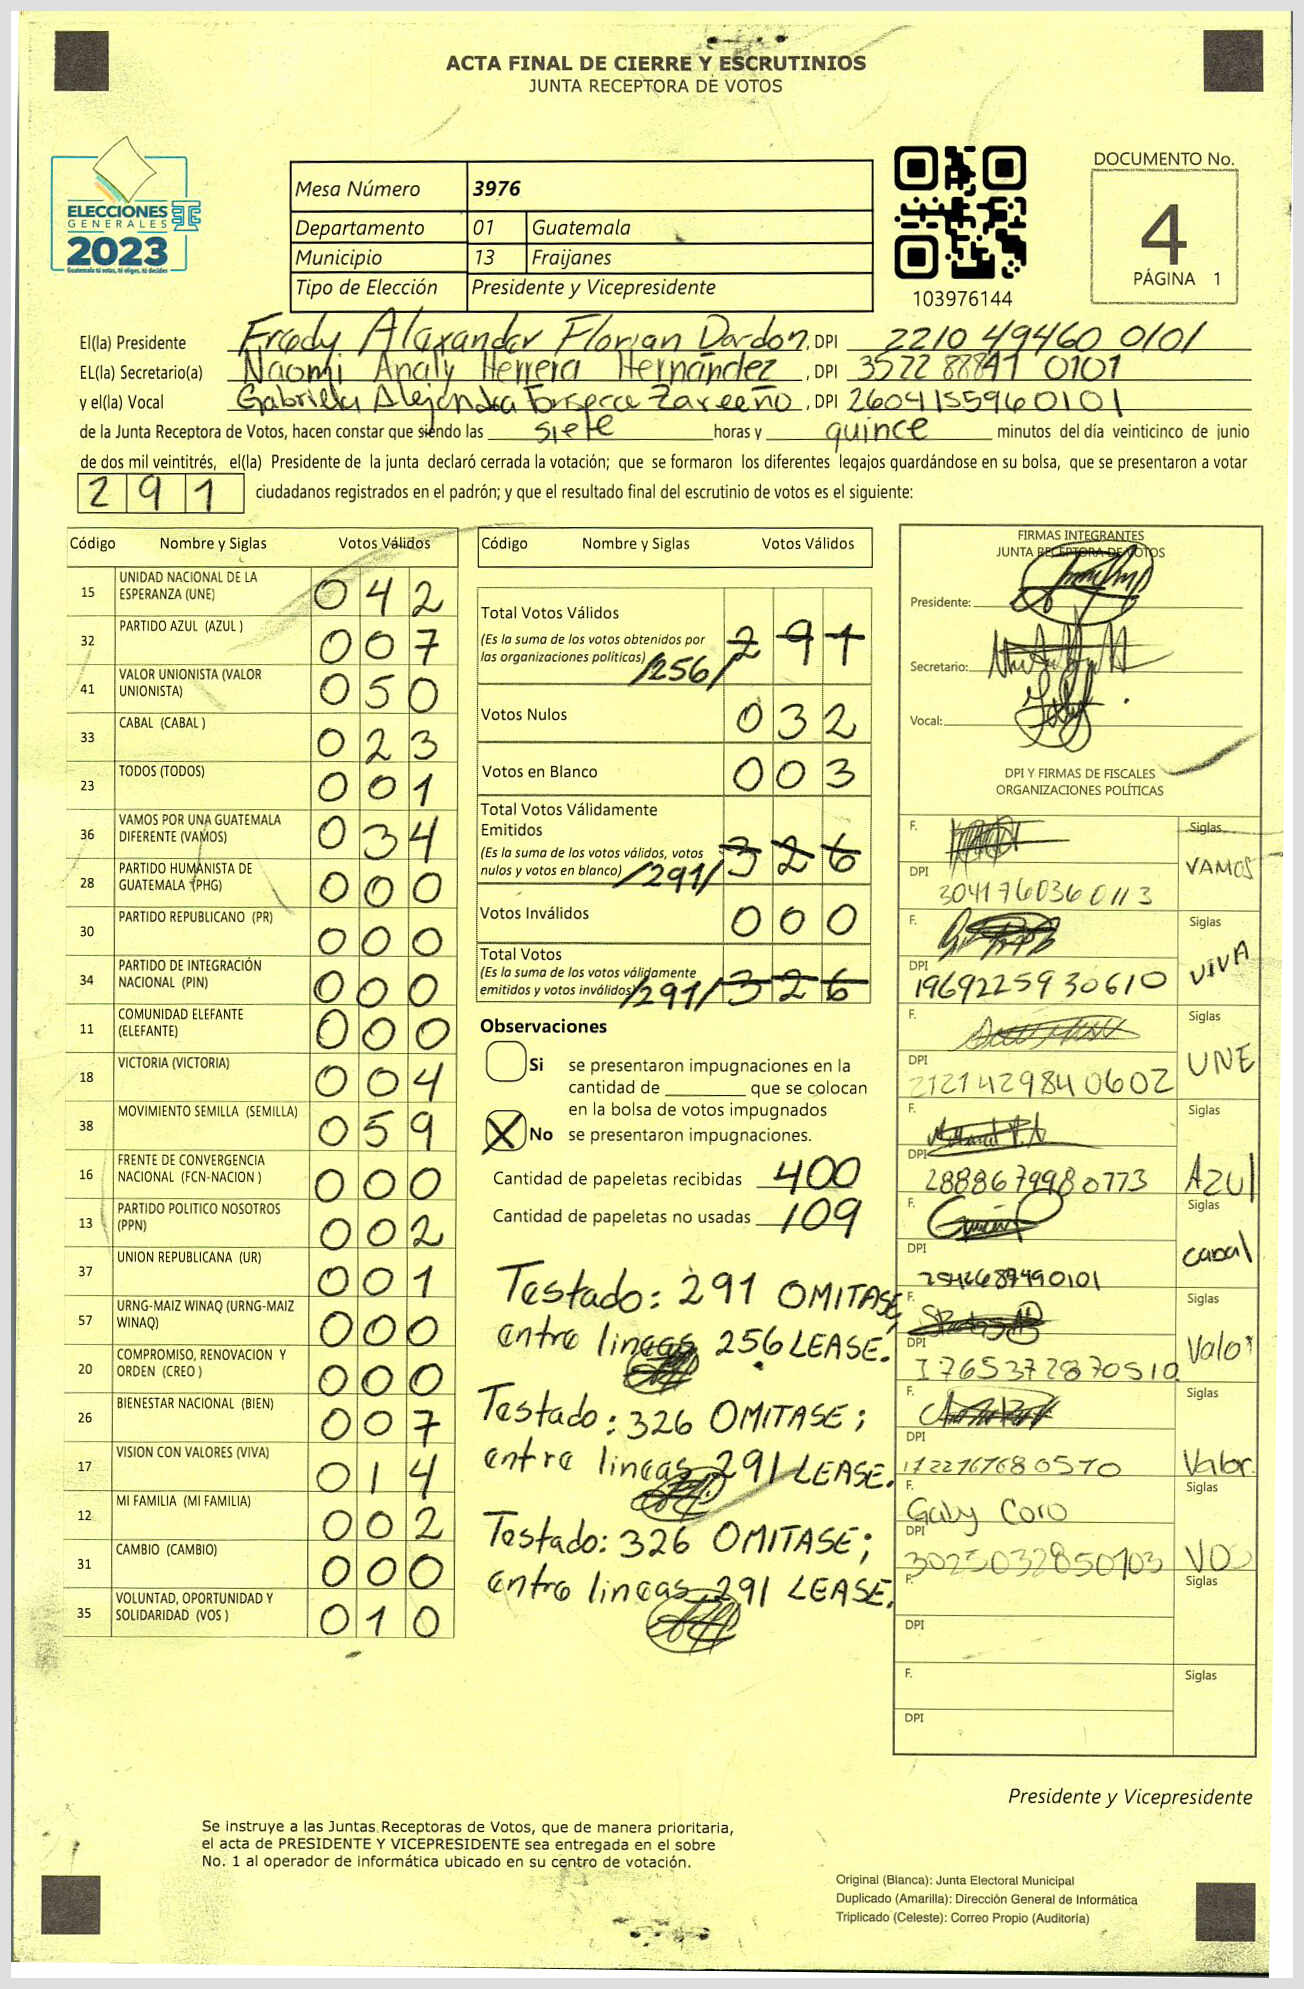 ACTA FINAL DE CIERRE Y ESCRUTINIOS
JUNTA RECEPTORA DE VOTOS
ELECCIONES
GENERALES
2023
Guatemala tú votas, tú eliges, tú decides
Mesa Número 3976
Departamento 01 Guatemala
Municipio 13 Fraijanes
Tipo de Elección Presidente y Vicepresidente
103976144
DOCUMENTO No.
4
PÁGINA 1
El(la) Presidente Fredy Alexander Florian Dardon, DPI 2210 49460 0101
EL(la) Secretario(a) Naomi Analy Herrera Hernández, DPI 3522 0101
y el(la) Vocal Gabriela Alejandra Fonseca, DPI 2604155960101
de la Junta Receptora de Votos, hacen constar que siendo las siete horas y quince minutos del día veinticinco de junio
de dos mil veintitrés, el(la) Presidente de la junta declaró cerrada la votación; que se formaron los diferentes legajos guardándose en su bolsa, que se presentaron a votar
291 ciudadanos registrados en el padrón; y que el resultado final del escrutinio de votos es el siguiente:
Código Nombre y Siglas Votos Válidos
15 UNIDAD NACIONAL DE LA ESPERANZA (UNE) 042
32 PARTIDO AZUL (AZUL ) 007
41 VALOR UNIONISTA (VALOR UNIONISTA) 050
33 CABAL (CABAL ) 023
23 TODOS (TODOS) 001
36 VAMOS POR UNA GUATEMALA DIFERENTE (VAMOS) 034
28 PARTIDO HUMANISTA DE GUATEMALA (PHG) 000
30 PARTIDO REPUBLICANO (PR) 000
34 PARTIDO DE INTEGRACIÓN NACIONAL (PIN) 000
11 COMUNIDAD ELEFANTE (ELEFANTE) 000
18 VICTORIA (VICTORIA) 004
38 MOVIMIENTO SEMILLA (SEMILLA) 059
16 FRENTE DE CONVERGENCIA NACIONAL (FCN-NACION ) 000
13 PARTIDO POLITICO NOSOTROS (PPN) 002
37 UNION REPUBLICANA (UR) 001
57 URNG-MAIZ WINAQ (URNG-MAIZ WINAQ) 000
20 COMPROMISO, RENOVACION Y ORDEN (CREO ) 000
26 BIENESTAR NACIONAL (BIEN) 007
17 VISION CON VALORES (VIVA) 014
12 MI FAMILIA (MI FAMILIA) 002
31 CAMBIO (CAMBIO) 000
35 VOLUNTAD, OPORTUNIDAD Y SOLIDARIDAD (VOS ) 010
Código Nombre y Siglas Votos Válidos
Total Votos Válidos
(Es la suma de los votos obtenidos por
las organizaciones políticas) /256/ 291
Votos Nulos 032
Votos en Blanco 003
Total Votos Válidamente
Emitidos
(Es la suma de los votos válidos, votos
nulos y votos en blanco) /291/ 326
Votos Inválidos 000
Total Votos
(Es la suma de los votos válidamente
emitidos y votos inválidos) /291/ 326
Observaciones
Si se presentaron impugnaciones en la
cantidad de que se colocan
en la bolsa de votos impugnados
X No se presentaron impugnaciones.
Cantidad de papeletas recibidas 400
Cantidad de papeletas no usadas 109
Testado: 291 OMITASE;
entre lineas 256 LEASE.
Testado: 326 OMITASE;
entre lineas 291 LEASE.
Testado: 326 OMITASE;
entre lineas 291 LEASE.
FIRMAS INTEGRANTES
JUNTA RECEPTORA DE VOTOS
Presidente:
Secretario:
Vocal:
DPI Y FIRMAS DE FISCALES
ORGANIZACIONES POLÍTICAS
F. Siglas
VAMOS
DPI 3041760360113
F. Siglas
VIVA
DPI 1969225930610
F. Siglas
UNE
DPI 2121429840602
F. Siglas
AZUl
DPI 2888679980773
F. Siglas
cabal
DPI
F. Siglas
Valor
DPI 1765372870510
F. Siglas
Valor
DPI
F. Galy Coro Siglas
DPI 3023032850103 VOS
F. Siglas
DPI
F. Siglas
DPI
Presidente y Vicepresidente
Se instruye a las Juntas Receptoras de Votos, que de manera prioritaria,
el acta de PRESIDENTE Y VICEPRESIDENTE sea entregada en el sobre
No. 1 al operador de informática ubicado en su centro de votación.
Original (Blanca): Junta Electoral Municipal
Duplicado (Amarilla): Dirección General de Informática
Triplicado (Celeste): Correo Propio (Auditoría)